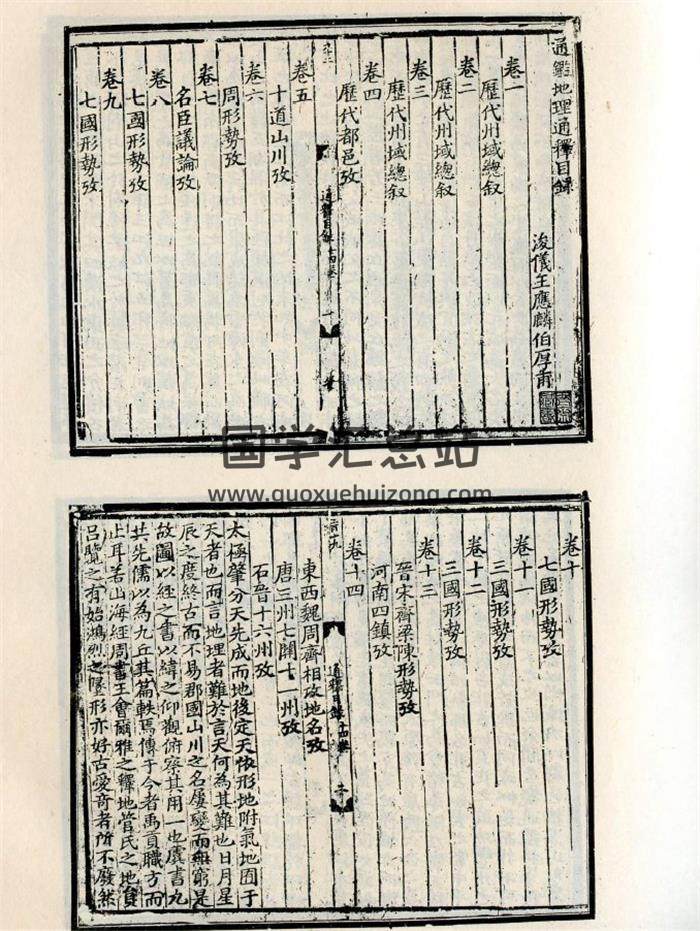 通鑑地理通釋目錄
浚儀王應麟伯厚甫
卷一
歷代州域總叙
卷二
歷代州域總叙
卷三
歷代州域總叙
卷四
歷代都邑攷
通釋目錄
卷五
十道山川攷
卷六
周形勢攷
卷七
名臣議論攷
卷八
七國形勢攷
卷九
七國形勢攷
国学汇总站
www.guoxuehuizong.com
卷十
七國形勢攷
卷十一
三國形勢攷
卷十二
三國形勢攷
卷十三
晉宋齊梁陳形勢攷
河南四鎮攷
卷十四
東西魏周齊相攻地名攷
通釋目錄
唐三州七關十一州攷
石晉十六州攷
太極肇分天先成而地後定天依形地附氣地囿于
天者也而言地理者難於言天何為其難也日月星
辰之度終古而不易郡國山川之名屢變而無窮是
故圖以經之書以緯之仰觀俯察其用一也虞書九
共先儒以為九丘其篇軼焉傳于今者禹貢職方而
止耳若山海經周書王會爾雅之釋地管氏之地員
呂覽之有始鴻烈之墬形亦好古愛奇者所不廢然